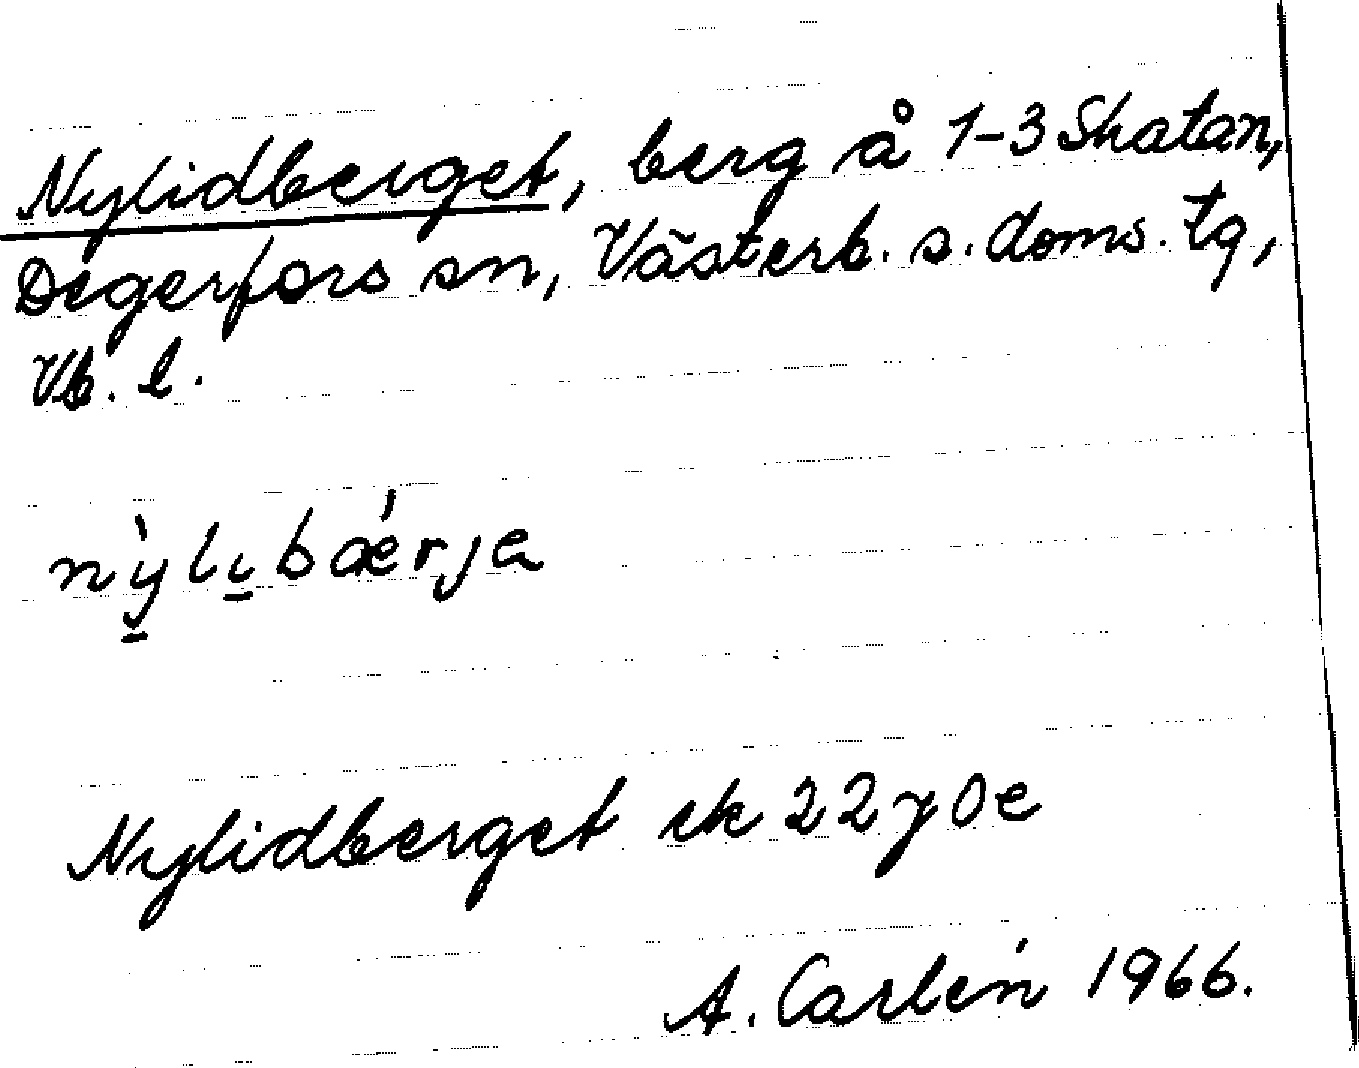 Nylidberget, berg å 1-3 Skatan,
Degerfors sn, Västerb. s. doms. tg,
Vb. l.
nỳ̱li̱bǽrja
Nylidberget ek 22 y 0 e
A. Carlén 1966.